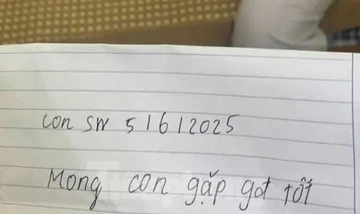 con SN 5/6/2025
Mong con gặp gđ tốt